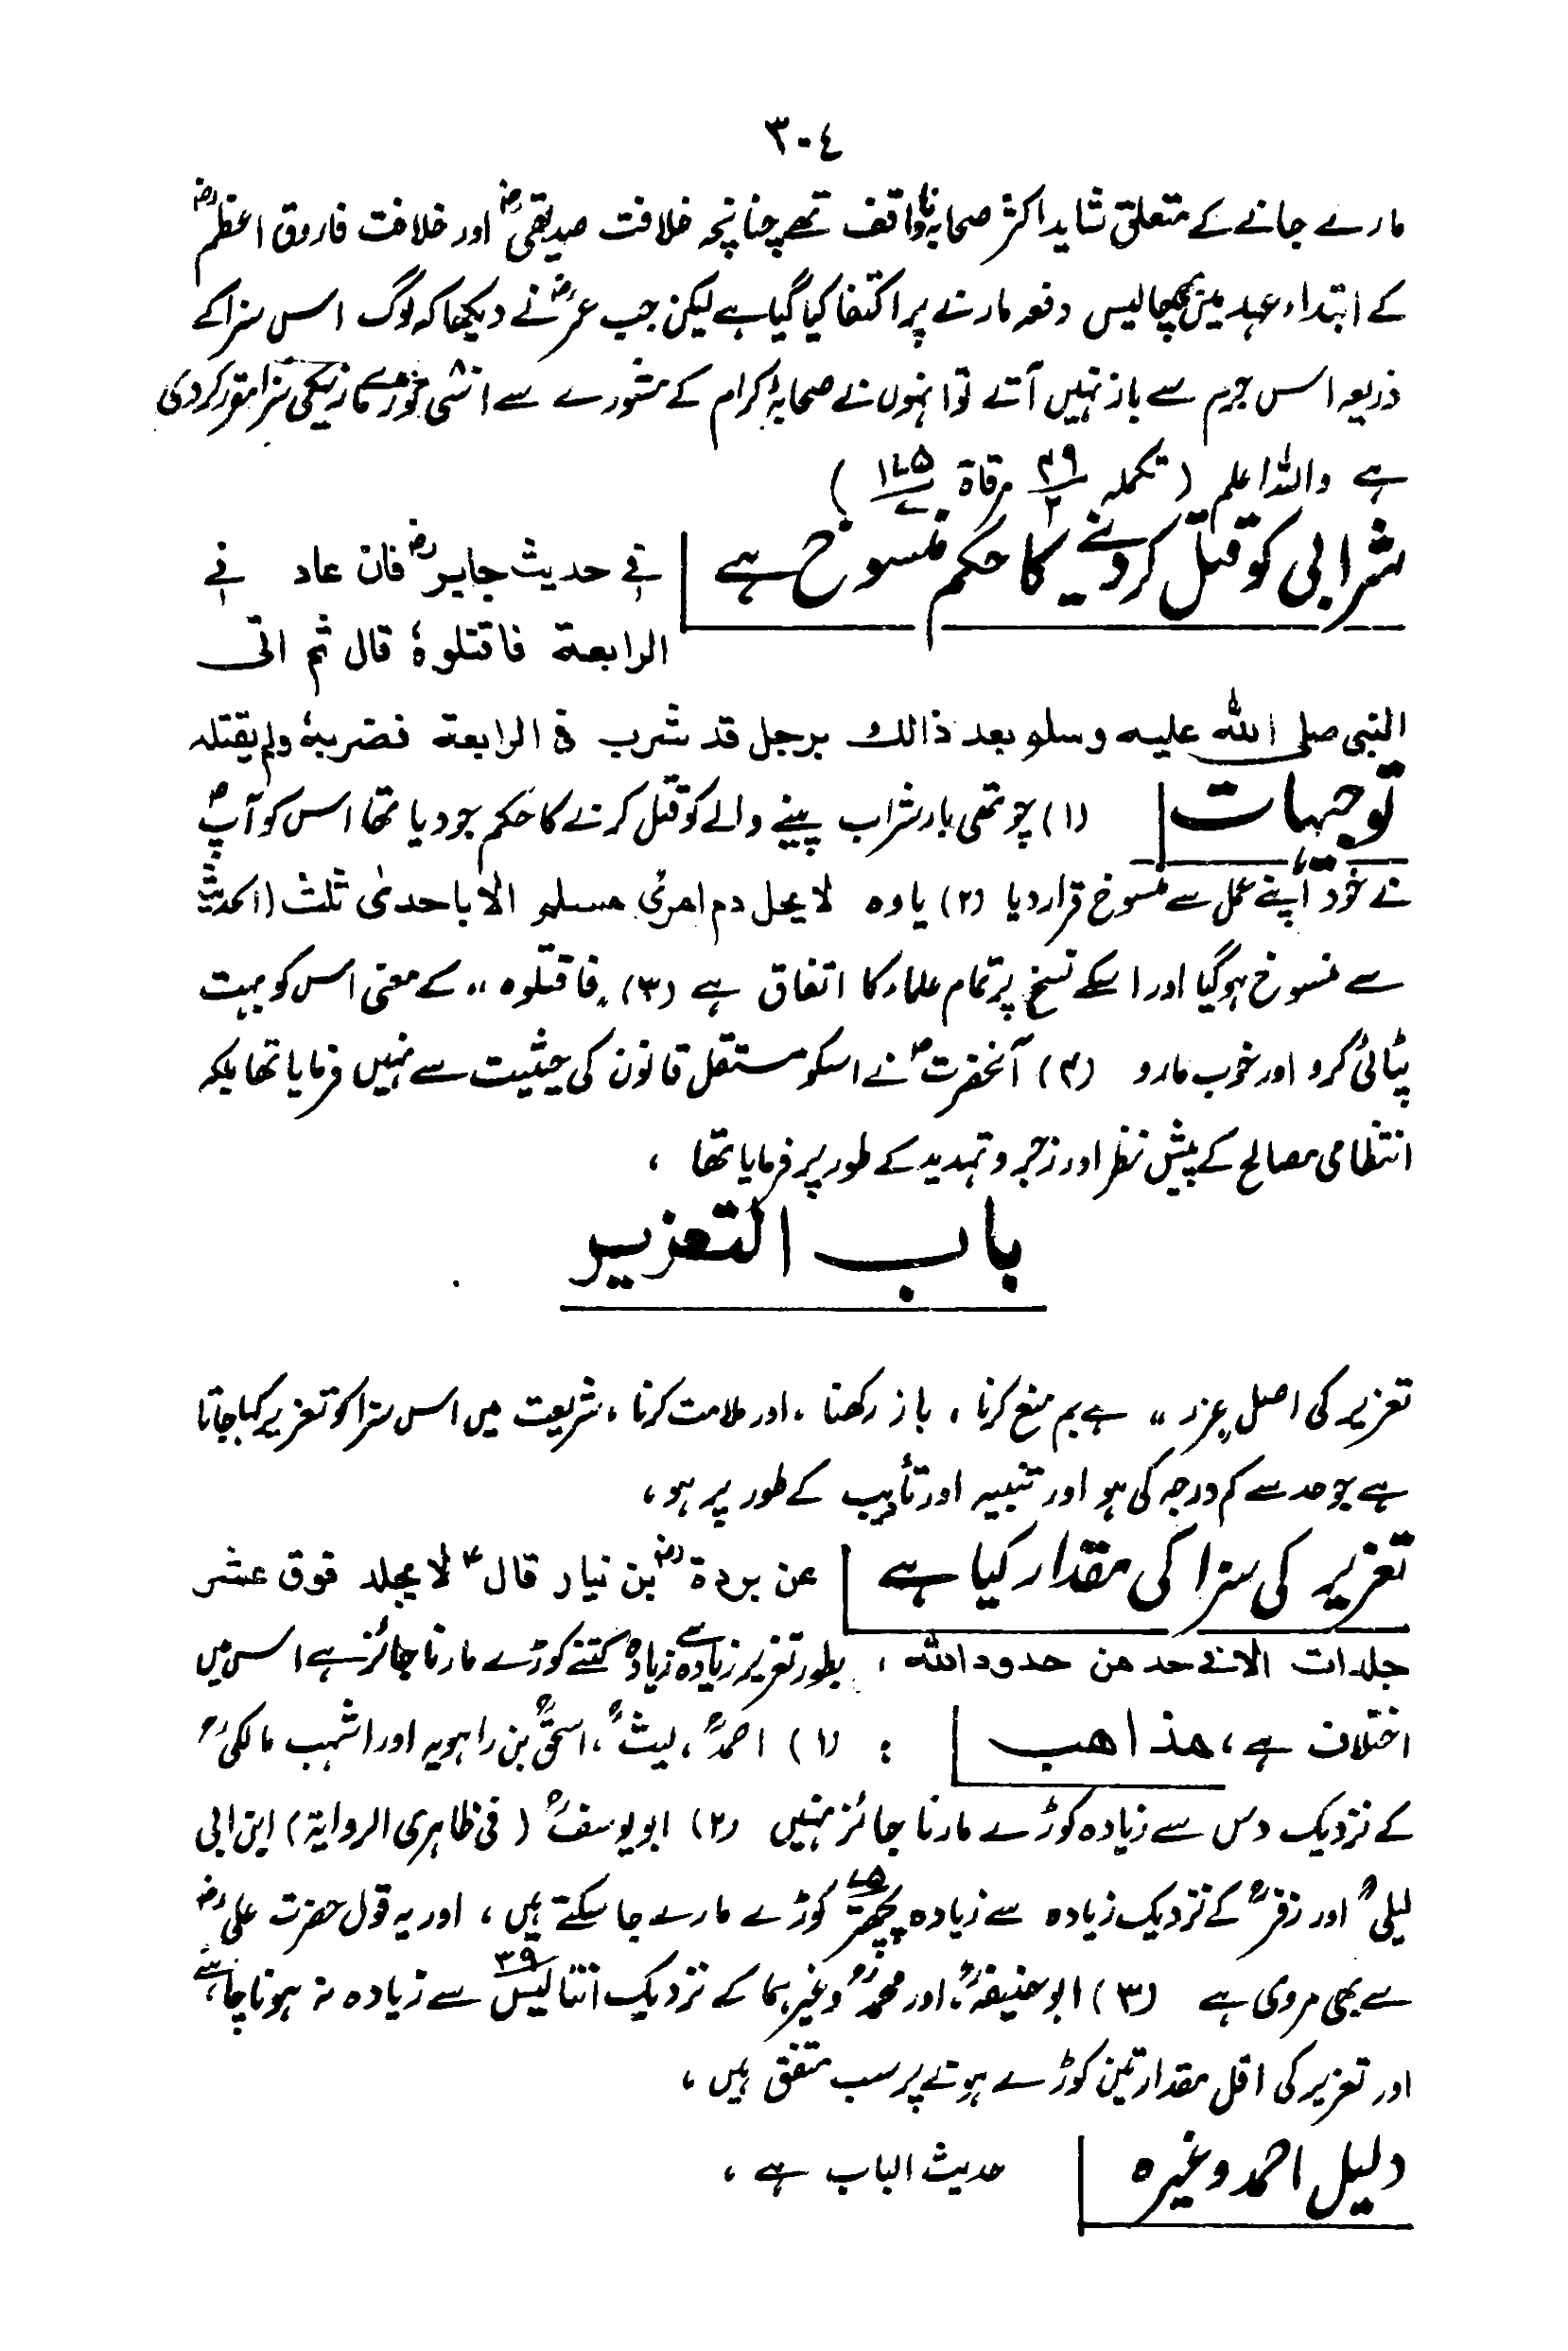 ٣٠٤
مارے جانے کے متعلق شاید اکثر صحابہ ناواقف تھے چنانچہ خلافت صدیقیؓ اور خلافت فاروق اعظمؓ
کے ابتداء عہد میں چالیس دفعہ مارنے پر اکتفا کیا گیا ہے لیکن جب عمرؓ نے دیکھا کہ لوگ اس سزا کے
ذریعہ اس جرم سے باز نہیں آتے تو انہوں نے صحابۂ کرام کے مشورے سے اسّی کوڑے مارنیکی سزا مقرر کردی
ہے واللہ اعلم (تکملہ ٤٩/٢ مرقاۃ ١٦٥/٧)
شرابی کو قتل کردینے کا حکم منسوخ ہے | فی حدیث جابرؓ فان عاد فی
الرابعة فاقتلوہٗ قال ثم اتی
النبی صلی اللہ علیہ وسلم بعد ذالك برجل قد شرب فی الرابعة فضربہٗ ولم یقتلہ
توجیہات | (١) چوتھی بار شراب پینے والے کو قتل کرنے کا حکم جو دیا تھا اس کو آپؐ
نے خود اپنے عمل سے منسوخ قرار دیا (٢) یا وہ لا یحل دم امرئ مسلم الا باحدیٰ ثلث (الحدیث)
سے منسوخ ہوگیا اور اسکے نسخ پر تمام علماء کا اتفاق ہے (٣) "فاقتلوہ" کے معنی اس کو بہت
پٹائی کرو اور خوب مارو (۴) آنحضرتؐ نے اسکو مستقل قانون کی حیثیت سے نہیں فرمایا تھا بلکہ
انتظامی مصالح کے پیش نظر اور زجر و تہدید کے طور پر فرمایا تھا ،
باب التعزیر
تعزیر کی اصل "عزر" ہے بم منع کرنا ، باز رکھنا ، اور ملامت کرنا ، شریعت میں اس سزا کو تعزیر کہا جاتا
ہے جو حد سے کم درجہ کی ہو اور تنبیہ اور تأدیب کے طور پر ہو ،
تعزیر کی سزا کی مقدار کیا ہے | عن بردة ؓ بن نیار قال ؑ لا یجلد فوق عشر
جلدات الا فی حد من حدود اللہ ، بطور تعزیر زیادہ سے زیادہ کتنے کوڑے مارنا جائز ہے اس میں
اختلاف ہے ، مذاھب | : (١) احمدؒ ، لیثؒ ، اسحقؒ بن راہویہ اور اشہب مالکیؒ
کے نزدیک دس سے زیادہ کوڑے مارنا جائز نہیں (٢) ابو یوسفؒ (فی ظاہری الروایۃ) ابن ابی
لیلیؒ اور زفرؒ کے نزدیک زیادہ سے زیادہ پچھتر ٧٥ کوڑے مارے جا سکتے ہیں ، اور یہ قول حضرت علیؓ
سے بھی مروی ہے (٣) ابو حنیفہؒ ، اور محمدؒ وغیرہما کے نزدیک انتالیس ٣٩ سے زیادہ نہ ہونا چاہئے ،
اور تعزیر کی اقل مقدار تین کوڑے ہونے پر سب متفق ہیں ،
دلیل احمد وغیرہ | حدیث الباب ہے ،